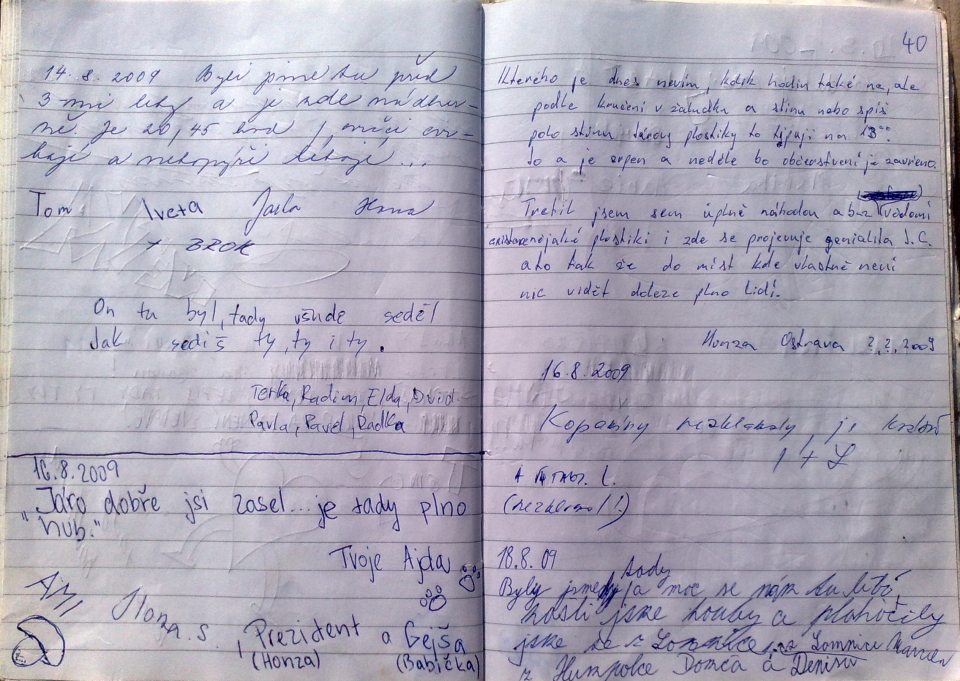 14. 8. 2009 Byli jsme tu před
3-mi lety a je zde nádher-
ně. Je 20,45 hod
a netopýři létají...
Tom Iveta Jarla Hana
+ BROK
On tu byl, tady všude seděl
Jak sediš ty, ty i ty.
Terka, Radim, Elda, David
Pavla, Pavel, Radka
16.8.2009
"Járo dobře jsi zasel... je tady plno
hub."
Tvoje Ajda
AMI
Ilona S., Prezident a Gejša
(Honza) (Babička)
40
Kterého je dnes nevím, kolik hodin také ne, ale
podle kručení v žaludku a stínu nebo spíš
polo stínu Járovy plastiky to typuji na 13°°.
Jo a je srpen a neděle bo občerstvení je zavřeno
Trefil jsem sem úplně náhodou a bez
plastiki i zde se projevuje genialita J.C.
a to tak že do míst kde vlastně není
nic vidět doleze plno lidí.
Honza Ostrava ?.?.2009
16.8.2009
Kopaniny nezklamaly, je krásně
I + L
(nezklamal!)
18.8.09
Byly jsme tady a moc se nám tu líbí,
jsme houby a plahočily
jsme se z Lomnice
z Humpolce Domča a Denisa